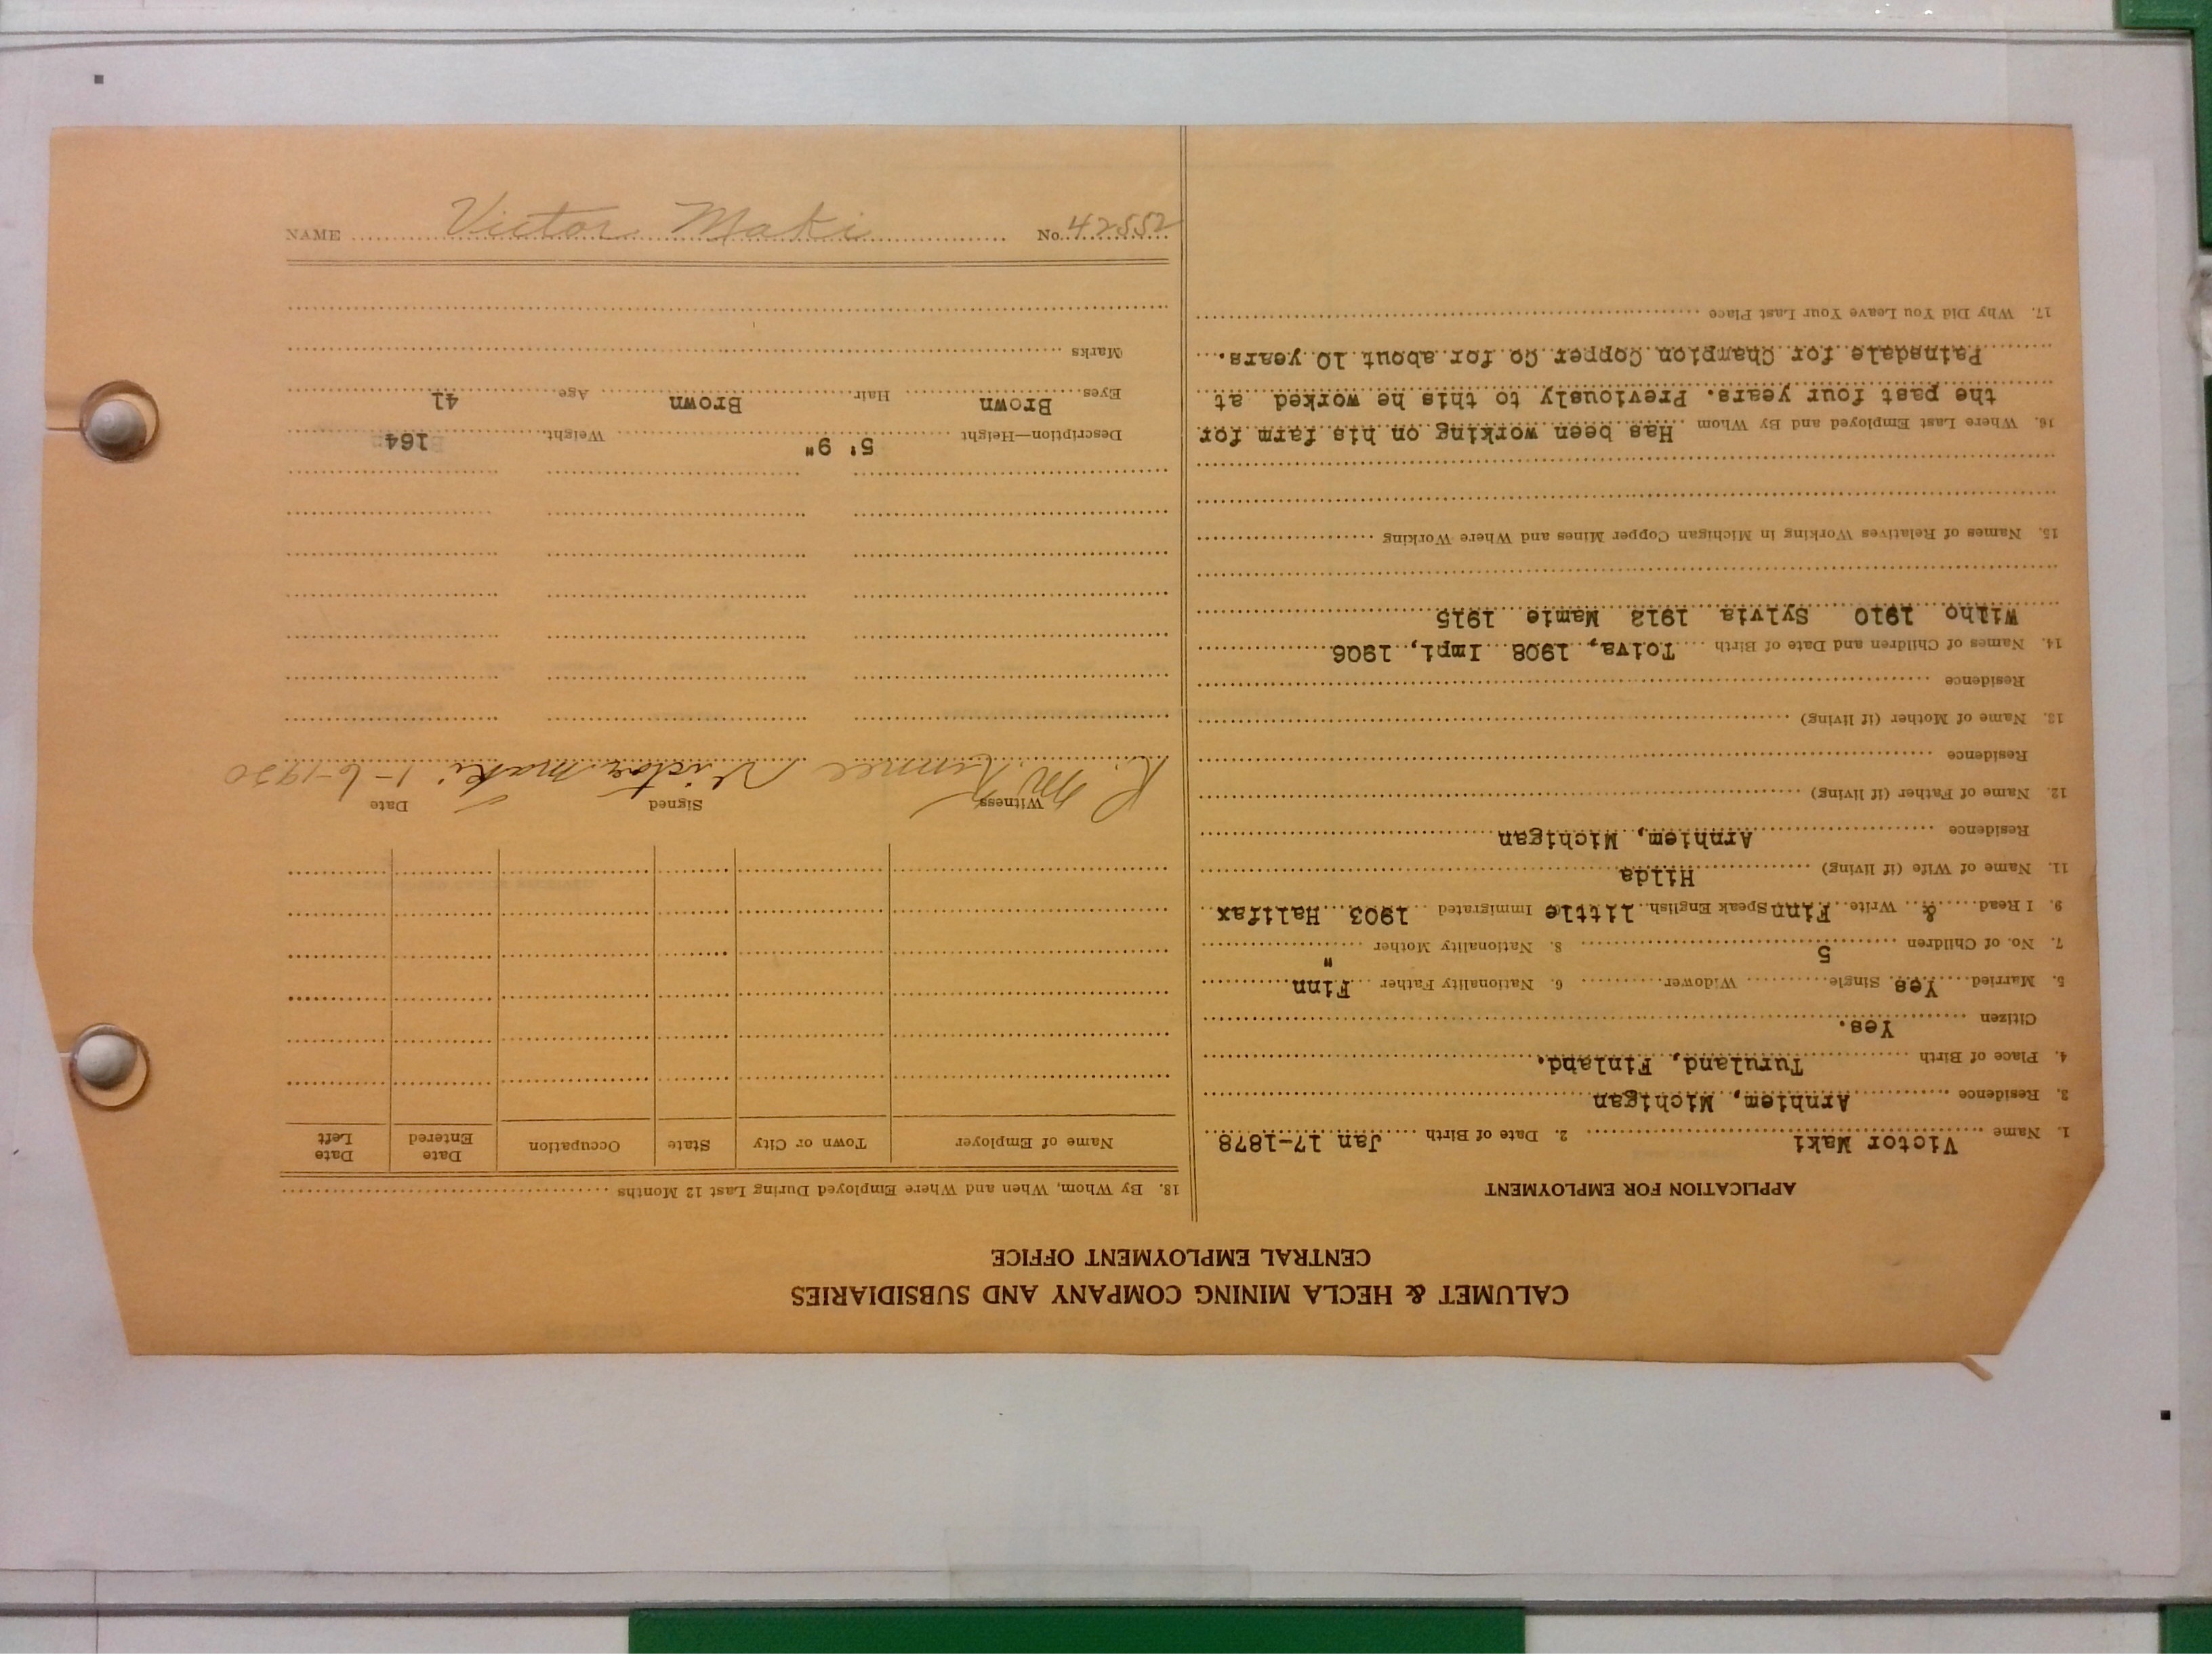 CALUMET & HECLA MINING COMPANY AND SUBSIDIARIES
CENTRAL EMPLOYMENT OFFICE
APPLICATION FOR EMPLOYMENT
1. Name Victor Maki 2. Date of Birth Jan 17-1878
3. Residence Arnhiem, Michigan
4. Place of Birth Turuland, Finland.
Citizen Yes.
5. Married Yes Single Widower 6. Nationality Father Finn
7. No. of Children 5 8. Nationality Mother "
9. I Read & Write Finn Speak English little Immigrated 1903 Halifax
11. Name of Wife (if living) Hilda
Residence Arnhiem, Michigan
12. Name of Father (if living)
Residence
13. Name of Mother (if living)
Residence
14. Names of Children and Date of Birth Toiva, 1908 Impi, 1906
Wilho 1910 Sylvia 1912 Mamie 1915
15. Names of Relatives Working in Michigan Copper Mines and Where Working
16. Where Last Employed and By Whom Has been working on his farm for
the past four years. Previously to this he worked at
Painsdale for Champion Copper Co for about 10 years.
17. Why Did You Leave Your Last Place
18. By Whom, When and Where Employed During Last 12 Months
Name of Employer Town or City State Occupation Date Entered Date Left
Witness Signed Date
Victor Maki 1-6-1920
Description—Height 5' 9" Weight 164
Eyes Brown Hair Brown Age 41
Marks
NAME Victor Maki No. 42552